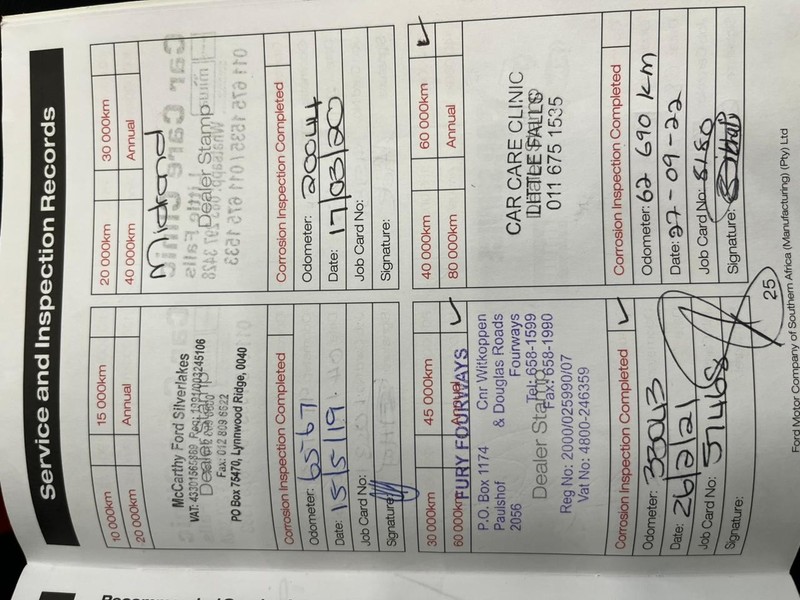 Service and Inspection Records
10 000km 15 000km
20 000km Annual
McCarthy Ford Silverlakes
Dealer Stamp
Fax: 012 809 6522
PO Box 75470, Lynnwood Ridge, 0040
Corrosion Inspection Completed
Odometer: 6567
Date: 15/5/19
Job Card No:
Signature:
20 000km 30 000km
40 000km Annual
Midrand
Dealer Stamp
Corrosion Inspection Completed
Odometer: 20044
Date: 17/03/20
Job Card No:
Signature:
30 000km 45 000km
60 000km Annual ✓
FURY FOURWAYS
P.O. Box 1174 Cnr Witkoppen
Paulshof & Douglas Roads
2056 Fourways
Tel: 658-1599
Fax: 658-1990
Dealer Stamp
Reg No: 2000/025990/07
Vat No: 4800-246359
Corrosion Inspection Completed ✓
Odometer: 38043
Date: 26/2/21
Job Card No: 57468
Signature:
40 000km 60 000km ✓
80 000km Annual
CAR CARE CLINIC
LITTLE FALLS
011 675 1535
Corrosion Inspection Completed
Odometer: 62 690 KM
Date: 27-09-22
Job Card No: 8180
Signature:
25
Ford Motor Company of Southern Africa (Manufacturing) (Pty) Ltd